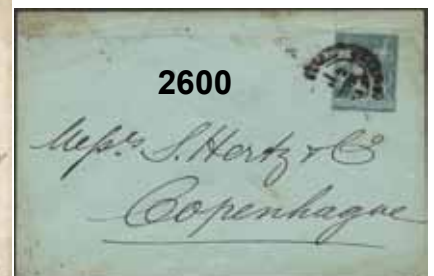 2600
Messrs S. Hertz & Co
Copenhague